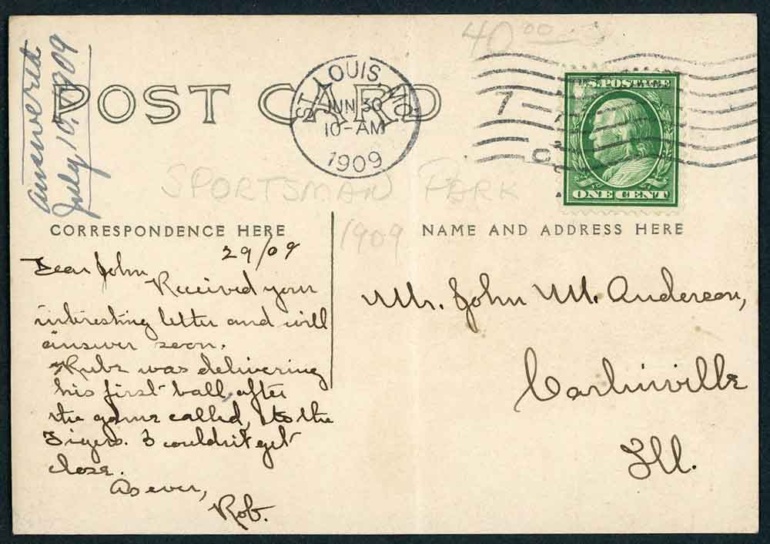 answered
July 10, 1909
40 00
POST CARD
ST. LOUIS, MO.
JUN 30
10-AM
1909
7
U.S. POSTAGE
ONE CENT
SPORTSMAN PARK
1909
CORRESPONDENCE HERE
29/09
Dear John,
Received your
interesting letter and will
answer soon.
was delivering
his first ball, after
the game called, to the
Tigers. I couldn't get
close.
As ever,
Rob.
NAME AND ADDRESS HERE
Mr. John M. Anderson,
Carlinville
Ill.